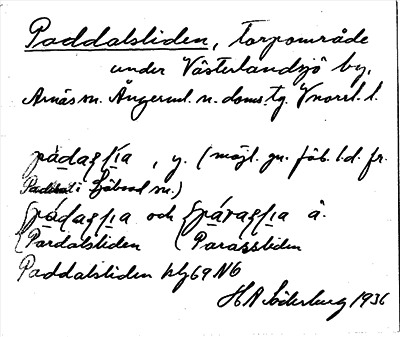 Paddalsliden, torpområde
under Västerlandsjö by,
Arnäs sn. Ångerml. n. doms.tg. Vnorrl. l.
pàdaslia, y. (möjl. gn.föb. l.d. fr.
i Sjöbod sn.)
{pàdaslia och {pàraslia ä.
{Pardalsliden {Parassliden
Paddalsliden hlg 69 NG
HR Söderberg 1936